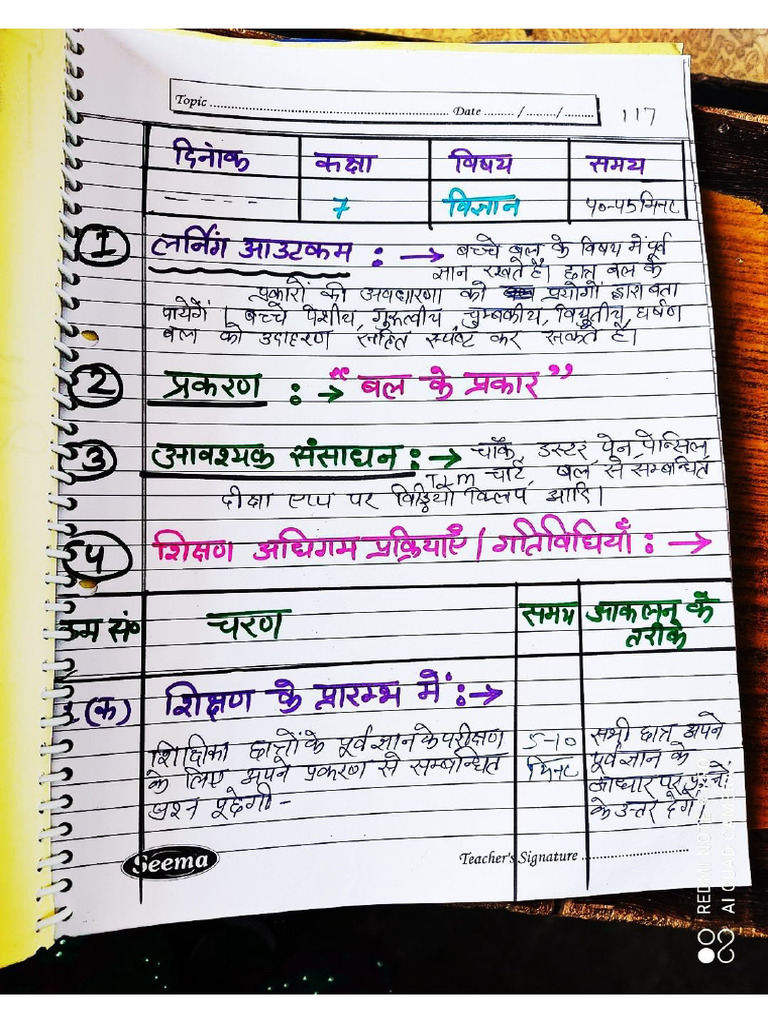 Topic ........................ Date ......../......../........
117
दिनांक कक्षा विषय समय
----- 7 विज्ञान 40-45 मिनट
1 लर्निंग आउटकम : → बच्चे बल के विषय में पूर्व
ज्ञान रखते हैं। छात्र बल के
प्रकारों की अवधारणा को प्रयोगों द्वारा बता
पायेगें। बच्चे पेशीय, गुरुत्वीय, चुम्बकीय, विद्युतीय, घर्षण
बल को उदाहरण सहित स्पष्ट कर सकते हैं।
2 प्रकरण : → "बल के प्रकार"
3 आवश्यक संसाधन : → चॉक, डस्टर, पेन, पेन्सिल,
TLM चार्ट, बल से सम्बन्धित
दीक्षा एप पर विडियो क्लिप आदि।
4 शिक्षण अधिगम प्रक्रियाएँ / गतिविधियाँ : →
क्रम सं० चरण समय आकलन के
तरीके
(क) शिक्षण के प्रारम्भ में : →
शिक्षिका छात्रों के पूर्वज्ञान के परीक्षण 5-10 सभी छात्र अपने
के लिए अपने प्रकरण से सम्बन्धित मिनट पूर्वज्ञान के
प्रश्न पूछेगी - आधार पर प्रश्नों
के उत्तर देगें।
Seema Teacher's Signature ........................
REDMI NOTE
AI QUAD CAMERA